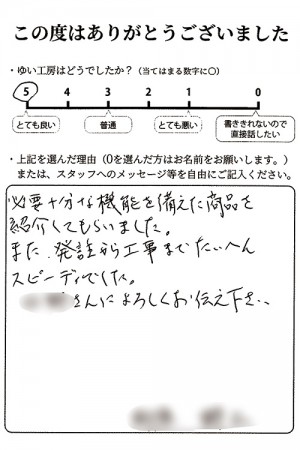 この度はありがとうございました
・ゆい工房はどうでしたか？（当てはまる数字に○）
5 4 3 2 1 0
とても良い 普通 とても悪い 書ききれないので直接話したい
・上記を選んだ理由（0を選んだ方はお名前をお願いします。）
または、スタッフへのメッセージ等を自由にご記入ください。
必要十分な機能を備えた商品を
紹介してもらいました。
また、発注から工事までたいへん
スピーディでした。
さんによろしくお伝え下さい